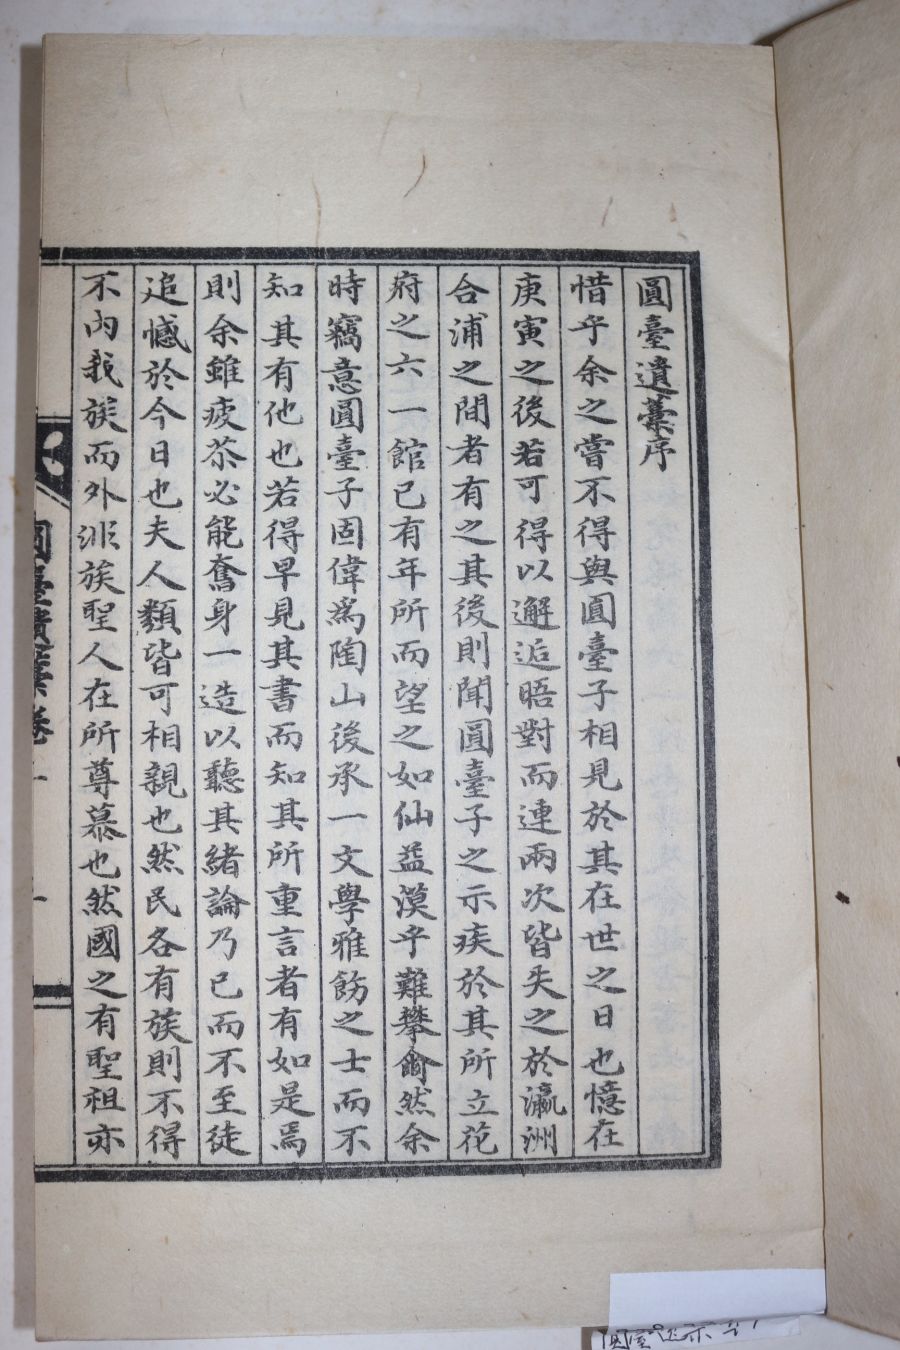 圓臺遺藁序
惜乎余之嘗不得與圓臺子相見於其在世之日也憶在
庚寅之後若可得以邂逅晤對而連兩次皆失之於瀛洲
合浦之間者有之其後則聞圓臺子之示疾於其所立花
府之六一館已有年所而望之如仙益漠乎難攀矣然余
時竊意圓臺子固偉爲陶山後承一文學雅飭之士而不
知其有他也若得早見其書而知其所重言者有如是焉
則余雖疲苶必能奮身一造以聽其緒論乃已而不至徒
追憾於今日也夫人類皆可相親也然民各有族則不得
不內我族而外非族聖人在所尊慕也然國之有聖祖亦
圓臺遺藁卷一